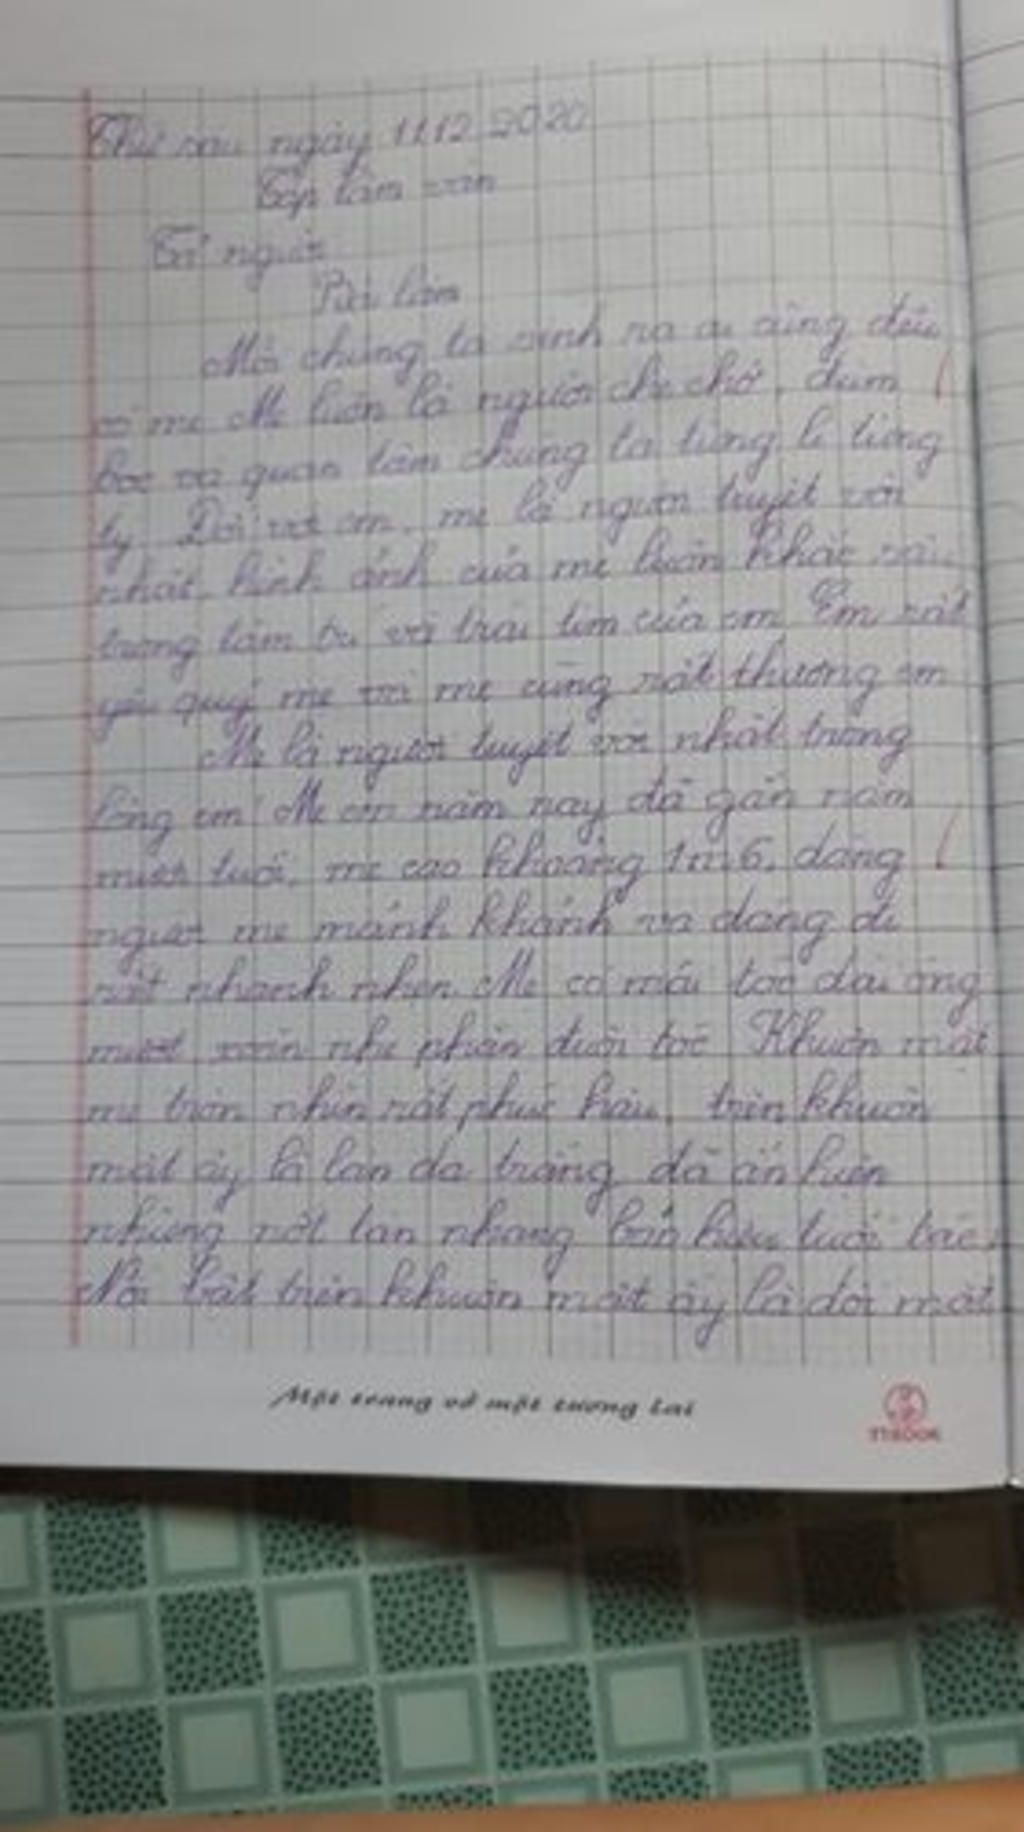 Thứ sáu ngày 11.12.2020
Tập làm văn
Tả người
Bài làm
Mỗi chúng ta sinh ra ai cũng đều
có mẹ. Mẹ luôn là người che chở, đùm
bọc và quan tâm chúng ta từng li từng
tý. Đối với em, mẹ là người tuyệt vời
nhất, hình ảnh của mẹ luôn khắc sâu
trong tâm trí và trái tim của em. Em rất
yêu quý mẹ và mẹ cũng rất thương em
Mẹ là người tuyệt vời nhất trong
lòng em. Mẹ em năm nay đã gần năm
mươi tuổi, mẹ cao khoảng 1m6, dáng
người mẹ mảnh khảnh và dáng đi
rất nhanh nhẹn. Mẹ có mái tóc dài óng
mượt, xoăn nhẹ phần đuôi tóc. Khuôn mặt
mẹ tròn nhìn rất phúc hậu, trên khuôn
mặt ấy là làn da trắng, đã ẩn hiện
những nốt tàn nhang báo hiệu tuổi tác.
Nổi bật trên khuôn mặt ấy là đôi mắt
Một trang vở một tương lai
TTBOOK